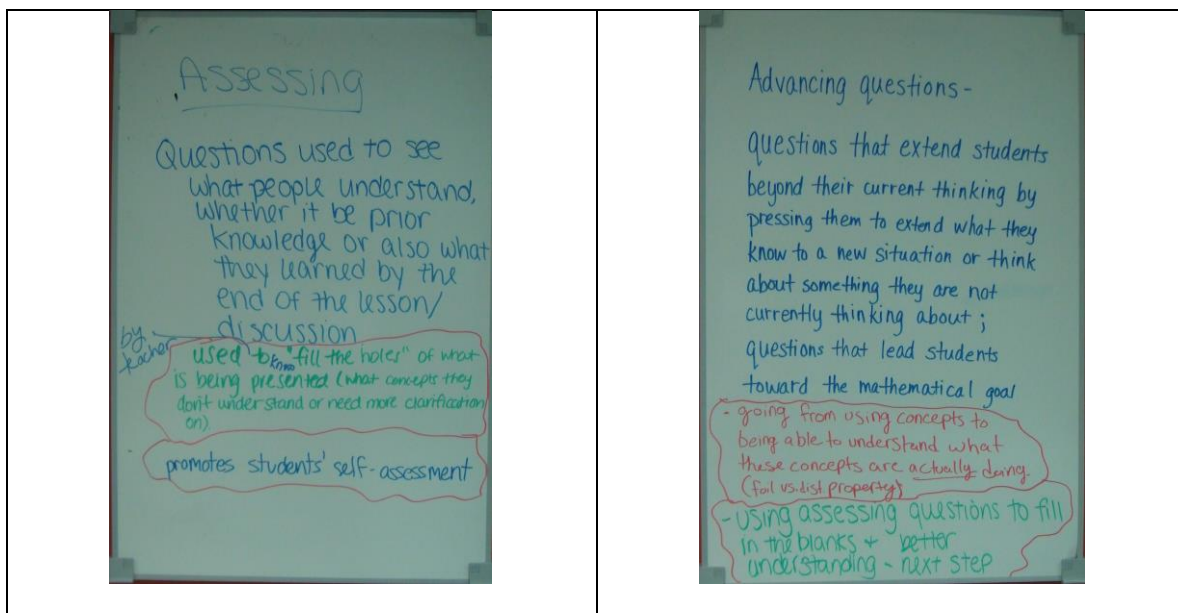 Assessing
Questions used to see
what people understand,
whether it be prior
knowledge or also what
they learned by the
end of the lesson/
discussion
by
teacher
used to know "fill the holes" of what
is being presented (what concepts they
don't understand or need more clarification
on).
promotes students' self-assessment
Advancing questions-
questions that extend students
beyond their current thinking by
pressing them to extend what they
know to a new situation or think
about something they are not
currently thinking about;
questions that lead students
toward the mathematical goal
- going from using concepts to
being able to understand what
these concepts are actually doing.
(foil vs. dist. property)
- using assessing questions to fill
in the blanks + better
understanding - next step